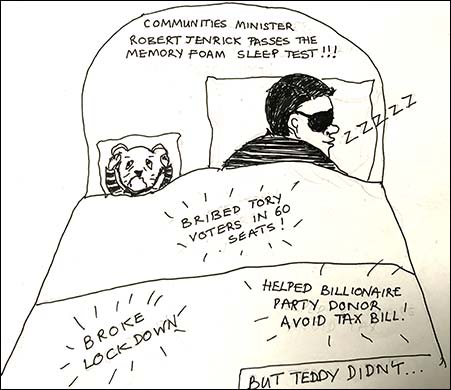 COMMUNITIES MINISTER
ROBERT JENRICK PASSES THE
MEMORY FOAM SLEEP TEST!!!
ZZZZZ
BRIBED TORY
VOTERS IN 60
SEATS!
HELPED BILLIONAIRE
PARTY DONOR
AVOID TAX BILL!
BROKE
LOCKDOWN
BUT TEDDY DIDN'T...